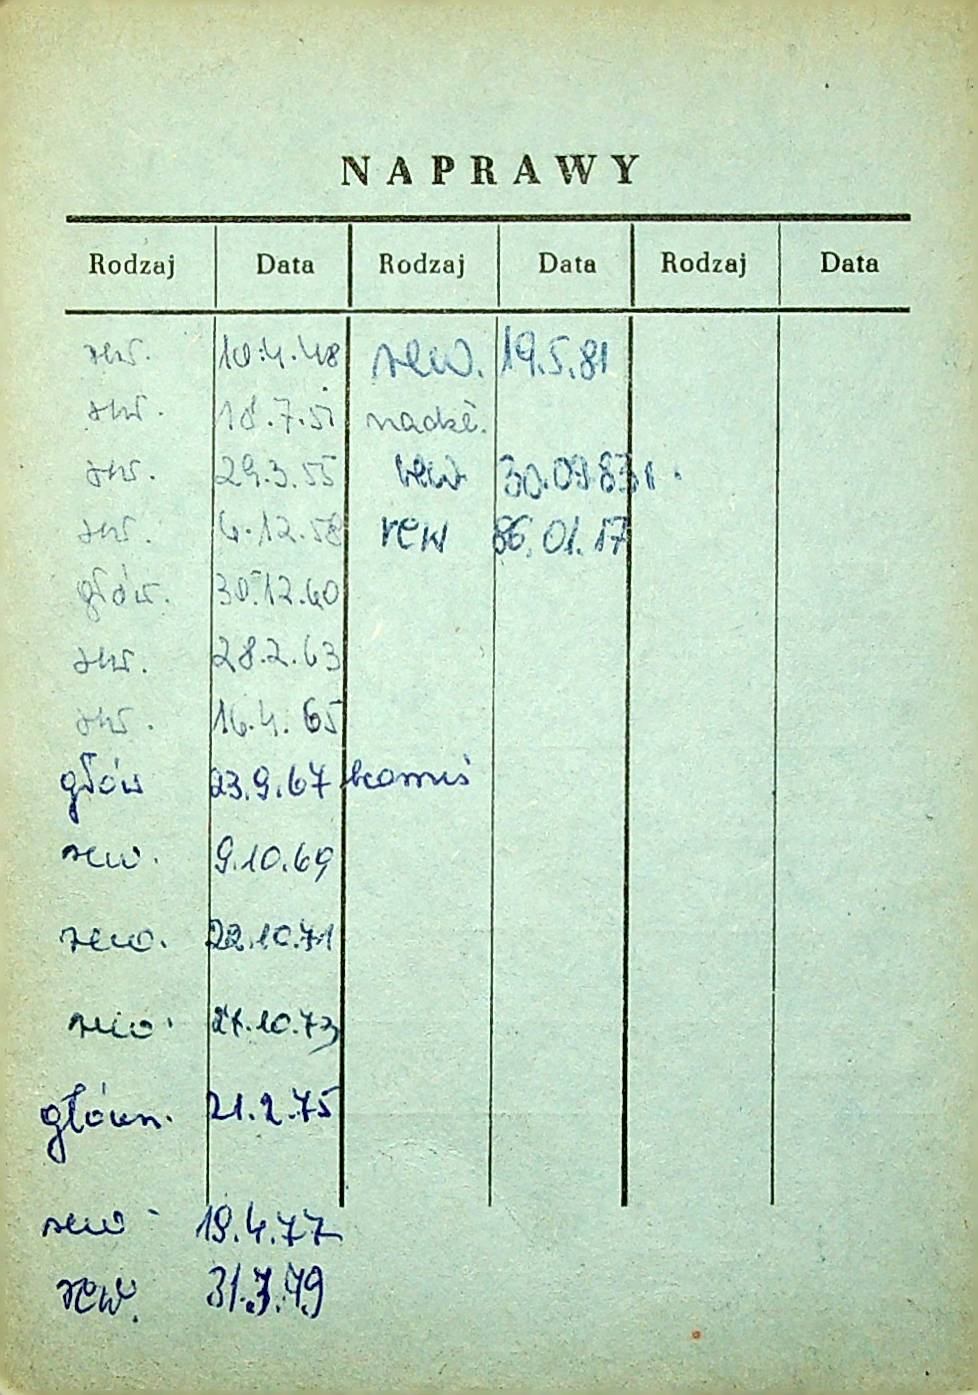 NAPRAWY
Rodzaj Data Rodzaj Data Rodzaj Data
rew. 10.4.48 rew. 19.5.81
rew. 18.7.51 nadzē.
rew. 29.3.55 rew 30.09.83r.
rew. 6.12.58 rew 86.01.17
głów. 30.12.60
rew. 28.2.63
rew. 16.4.65
głów 23.9.67
rew. 9.10.69
rew. 22.10.71
rew. 27.10.73
główn. 21.2.75
rew 19.4.77
rew. 31.7.79